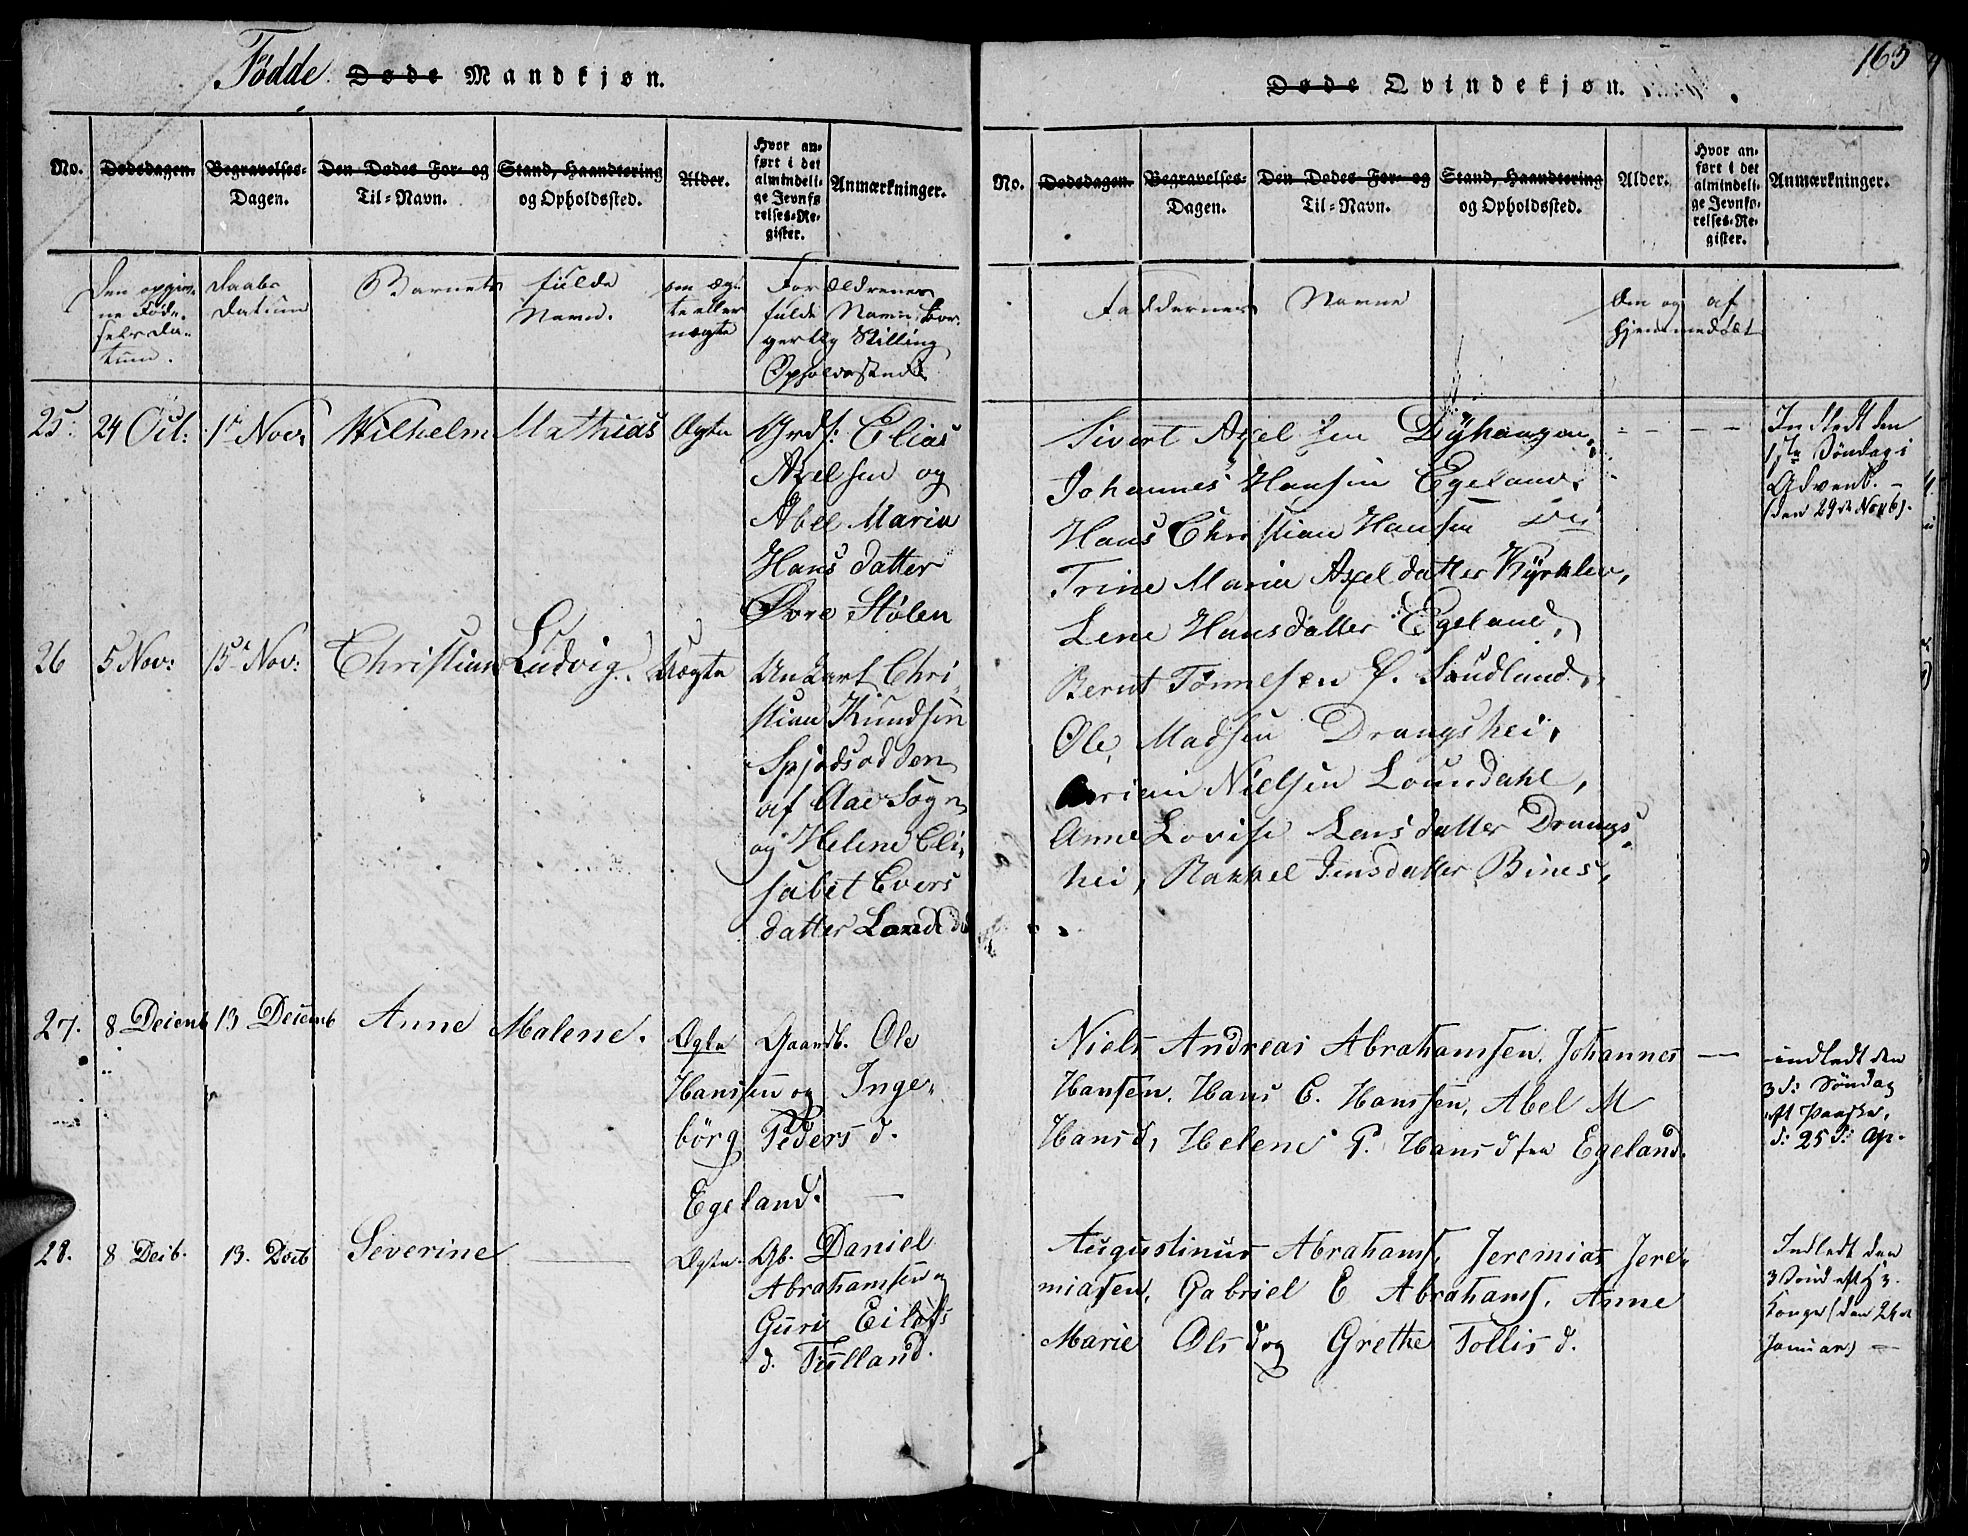 Fødde. Døde Mandkjøn.
No. Dødsdagen. Begravelses-Dagen. Den Dødes For- og Til-Navn. Stand, Haandtering og Opholdssted. Alder. Hvor anført i det almindelige Jevnførelses-Register. Anmærkninger.
Den opgivne Fødselsdatum.
Daabs Datum
Barnets fulde Navn.
om ægte eller uægte
Forældrenes fulde Navn, borgerlig Stilling Opholdssted
25. 24 Oct: 1de Nov: Wilhelm Mathias Ægte Grdf: Elias
Axelsen og
Abel Maria
Hans datter
Øvre Stølen
26 5 Nov: 15de Nov: Christian Ludvig. Uægte Unkarl Chri-
stian Knudsen
Spjodsodden
af Aae Sogn
og Helene Eli-
sabet Evers
datter Lande
27. 8 Decemb 13 Decemb Anne Malene. Ægte Gaardb. Ole
Hanssen og Inge-
børg Peders d.
Egeland. —
28. 8 Decb. 13. Decb Severine Ægte. Gb. Daniel
Abrahamsen og
Guri Eilofs
d. Tulland.
165
Døde Qvindekjøn.
No. Dødsdagen. Begravelses-Dagen. Den Dødes For- og Til-Navn. Stand, Haandtering og Opholdssted. Alder. Hvor anført i det almindelige Jevnførelses-Register. Anmærkninger.
Faddernes Navne
Om og af
hjemmedøbt
Sivert Axelsen Dyhaugen,
Johannes Hansen Egeland,
Hans Christian Hansen
Trine Maria Axeldatter Kyrklev,
Lene Hansdatter Egeland,
Indledt den
1ste Søndag i
Advent.
(den 29de Novb).
Bernt Tønnesen Ø. Sandland,
Ole Madsen Drangshei,
Adrian Nielsen Loundahl,
Anne Lovise Larsdatter Drangs-
hei, Rakkel Jensdatter Bines,
Niels Andreas Abrahamsen, Johannes
Hansen, Hans C. Hanssen, Abel M
Hansd, Helene P. Hansd fra Egeland.
indledt den
3d: Søndag
eft Paaske,
d: 25d: Ap.
Augustinus Abrahams, Jeremias Jere-
miasen, Gabriel E Abrahams, Anne
Marie Olsd og Grethe Tollis d.
Indledt den
3 Sønd eft H 3
Konger (den 24de
Januar) —